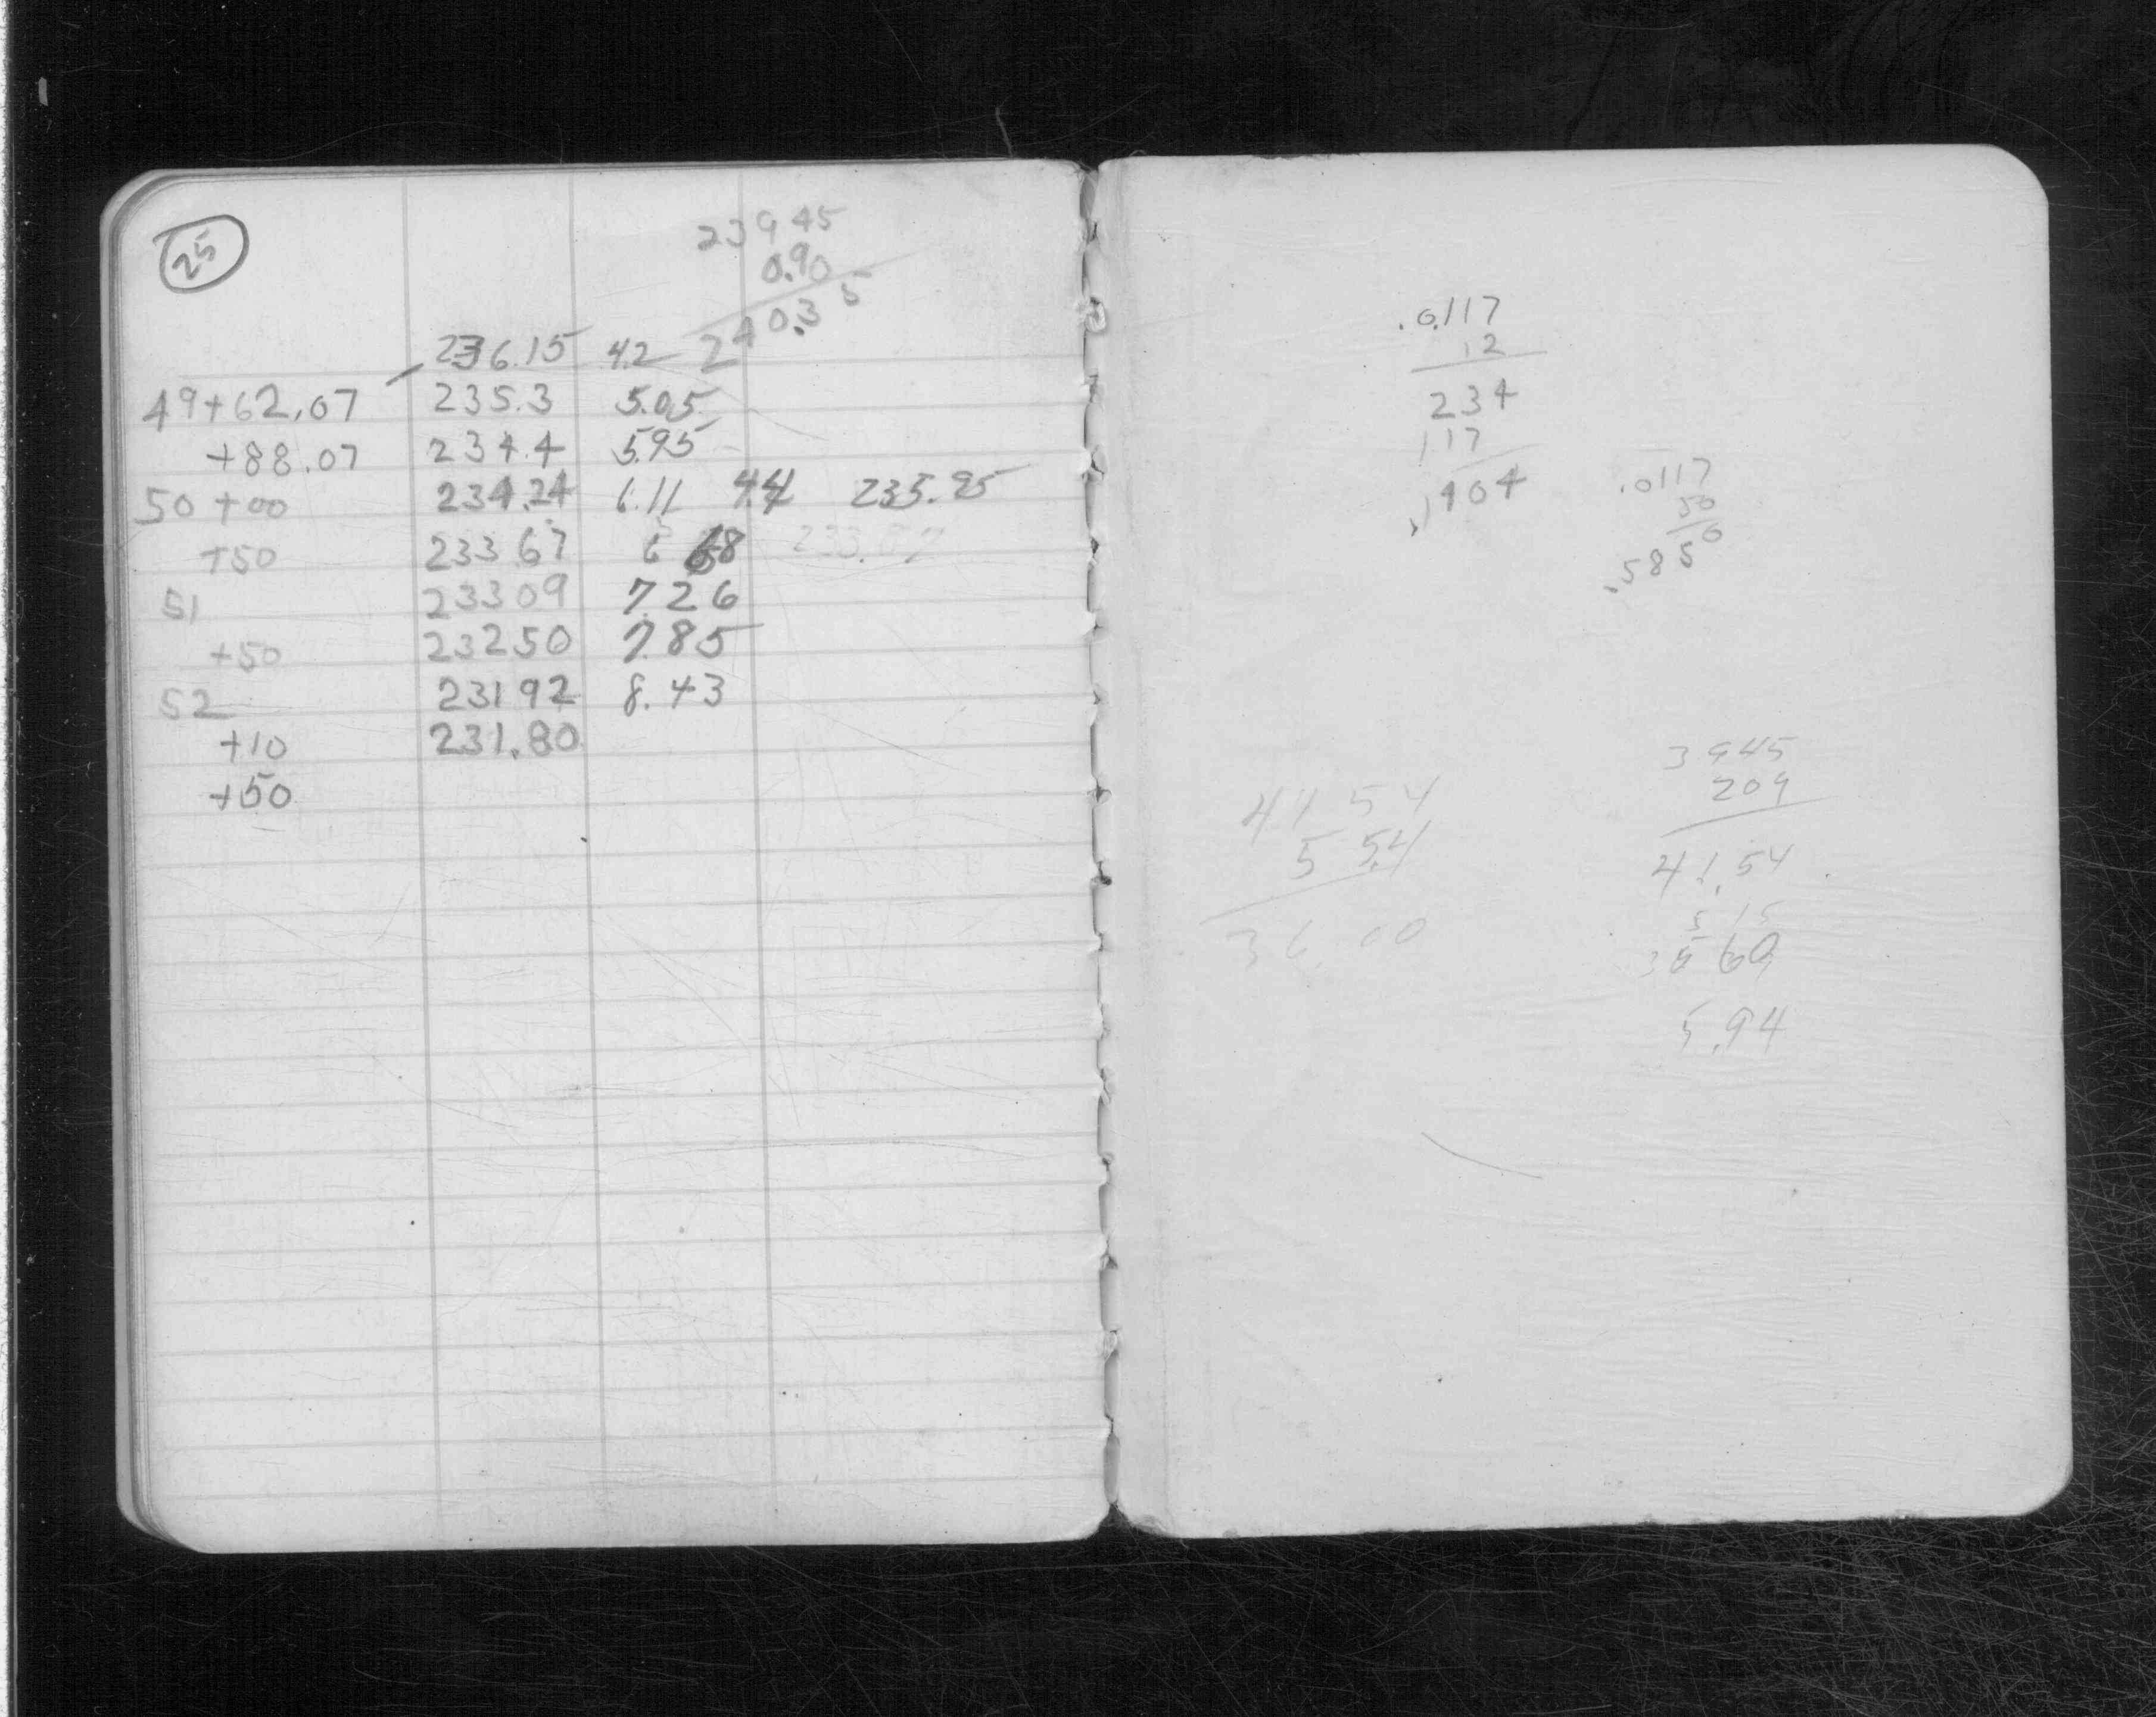 25
239 45
0.90
240.35
236.15 4.2
49+62.07 235.3 5.05
+88.07 234.4 5.95
50+00 234.24 6.11 4.4 235.95
+50 233 67 6 68 233.67
51 233 09 7.26
+50 232 50 7.85
52 231 92 8.43
+10 231.80
+50
.0117
12
234
117
.1404
.0117
50
.5850
3945
209
41.54
5 15
5.94
41 54
5 54
36.00